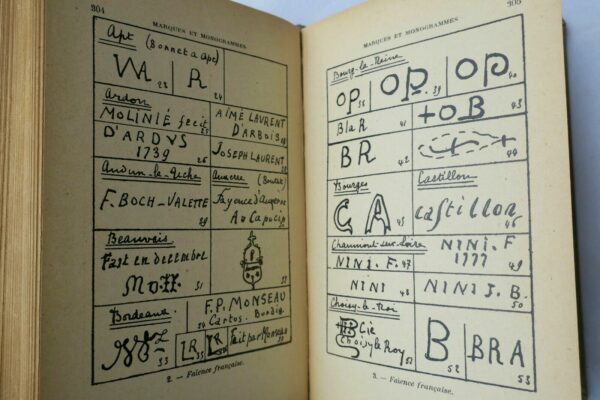 304
MARQUES ET MONOGRAMMES
Apt (Bonnet a Apt)
VA 23
R 24
Ardon
MOLINIÉ fecit 25
D'ARDVS
1739 26
AIMÉ LAURENT
D'ARBOIS
JOSEPH LAURENT
Audun-le-Tiche
F. BOCH-VALETTE
29
Auxerre (Boutet)
fayence d'Auxerre
Au Capucin
Beauvais
Fast en decembre
31
Bordeaux
33
F.P. MONSEAU
34 Cartos. Burdig
35
fait par Monseau
2. — Faïence française.
305
MARQUES ET MONOGRAMMES
Bourg-la-Reine
OP 38
OP 39
OP 40
Bla R 41
+OB 43
BR 42
44
Bourges
CA 45
Castillon
Castillon
46
Chaumont-sur-Loire
NINI. F. 47
NINI. F
1777 49
NINI 48
NINI J. B.
50
Choisy-le-Roi
Cie
Choisy le Roy
51
B 52
BRA
53
3. — Faïence française.